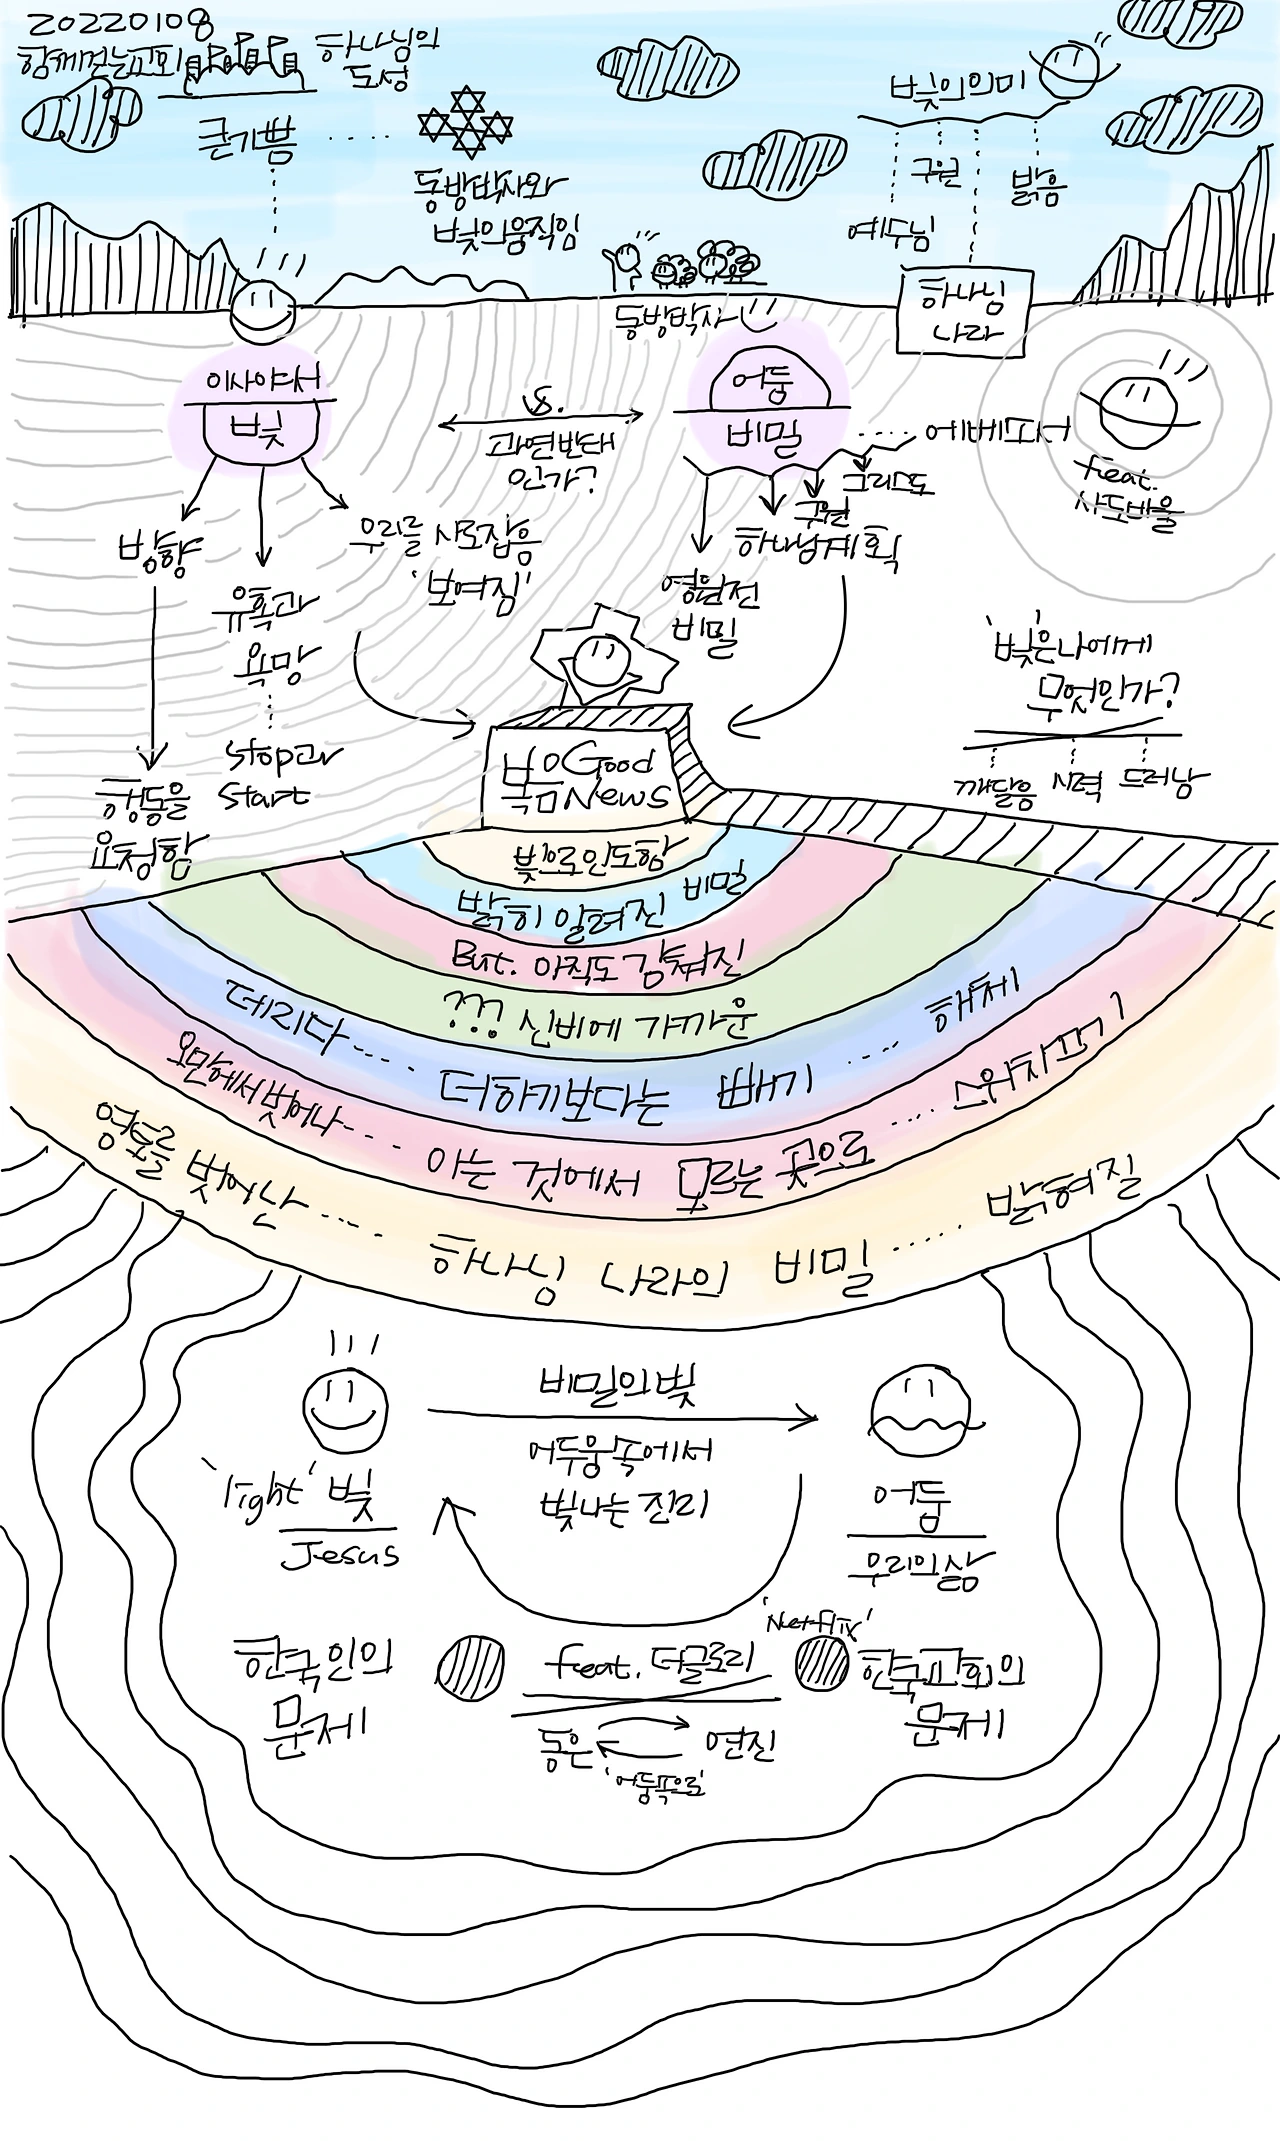 20220108
함께걷는교회
하나님의
도성
큰기쁨
동방박사와
빛의움직임
빛의의미
구원
밝음
예수님
하나님
나라
동방박사
이사야서
빛
VS.
과연반대
인가?
어둠
비밀
에베소서
feat.
사도바울
그리스도
구원
하나님계획
영원전
비밀
방향
유혹과
욕망
stop과
start
우리를 사로잡음
'보여짐'
행동을
요청함
복음Good
News
'빛'은나에게
무엇인가?
깨달음 시력 드러남
빛으로인도함
밝히 알려진 비밀
But. 아직도 감춰진
??? 신비에 가까운
데리다 더하기보다는 빼기 해체
오만에서벗어나 아는 것에서 모르는 곳으로 스위치끄기
영토를 벗어난 하나님 나라의 비밀 밝혀질
비밀의빛
어두움속에서
빛나는 진리
'light' 빛
Jesus
어둠
우리의삶
한국인의
문제
feat. 더글로리
'Netflix'
동은 연진
'어둠속으로'
한국교회의
문제